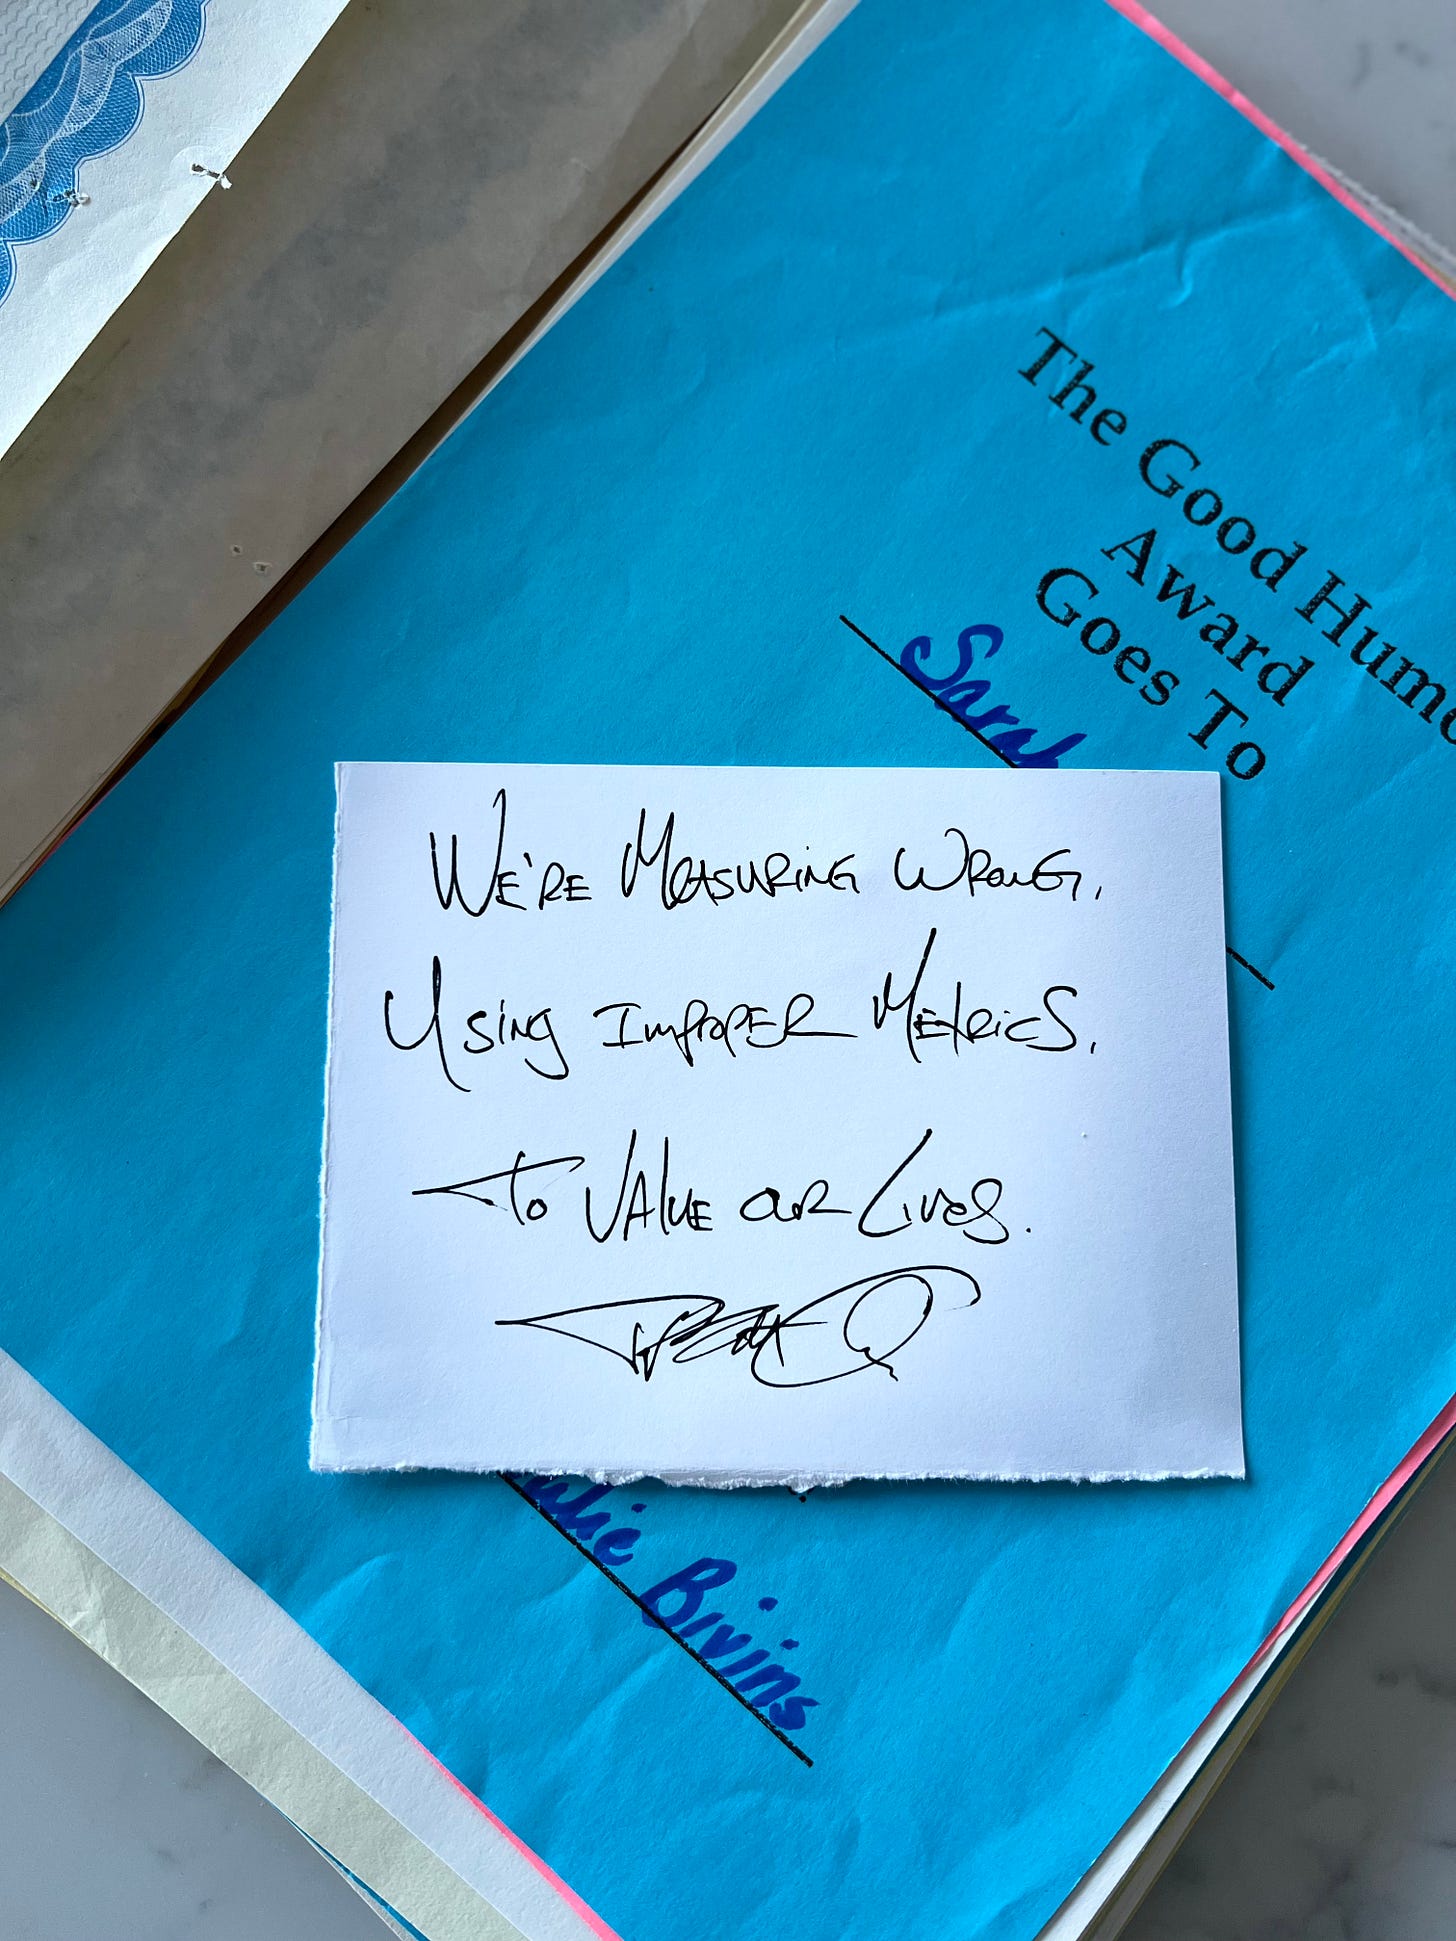 The Good Humo
Award
Goes To
Sarah
We're Measuring Wrong.
Using Improper Metrics.
To Value our Lives.
Bivins